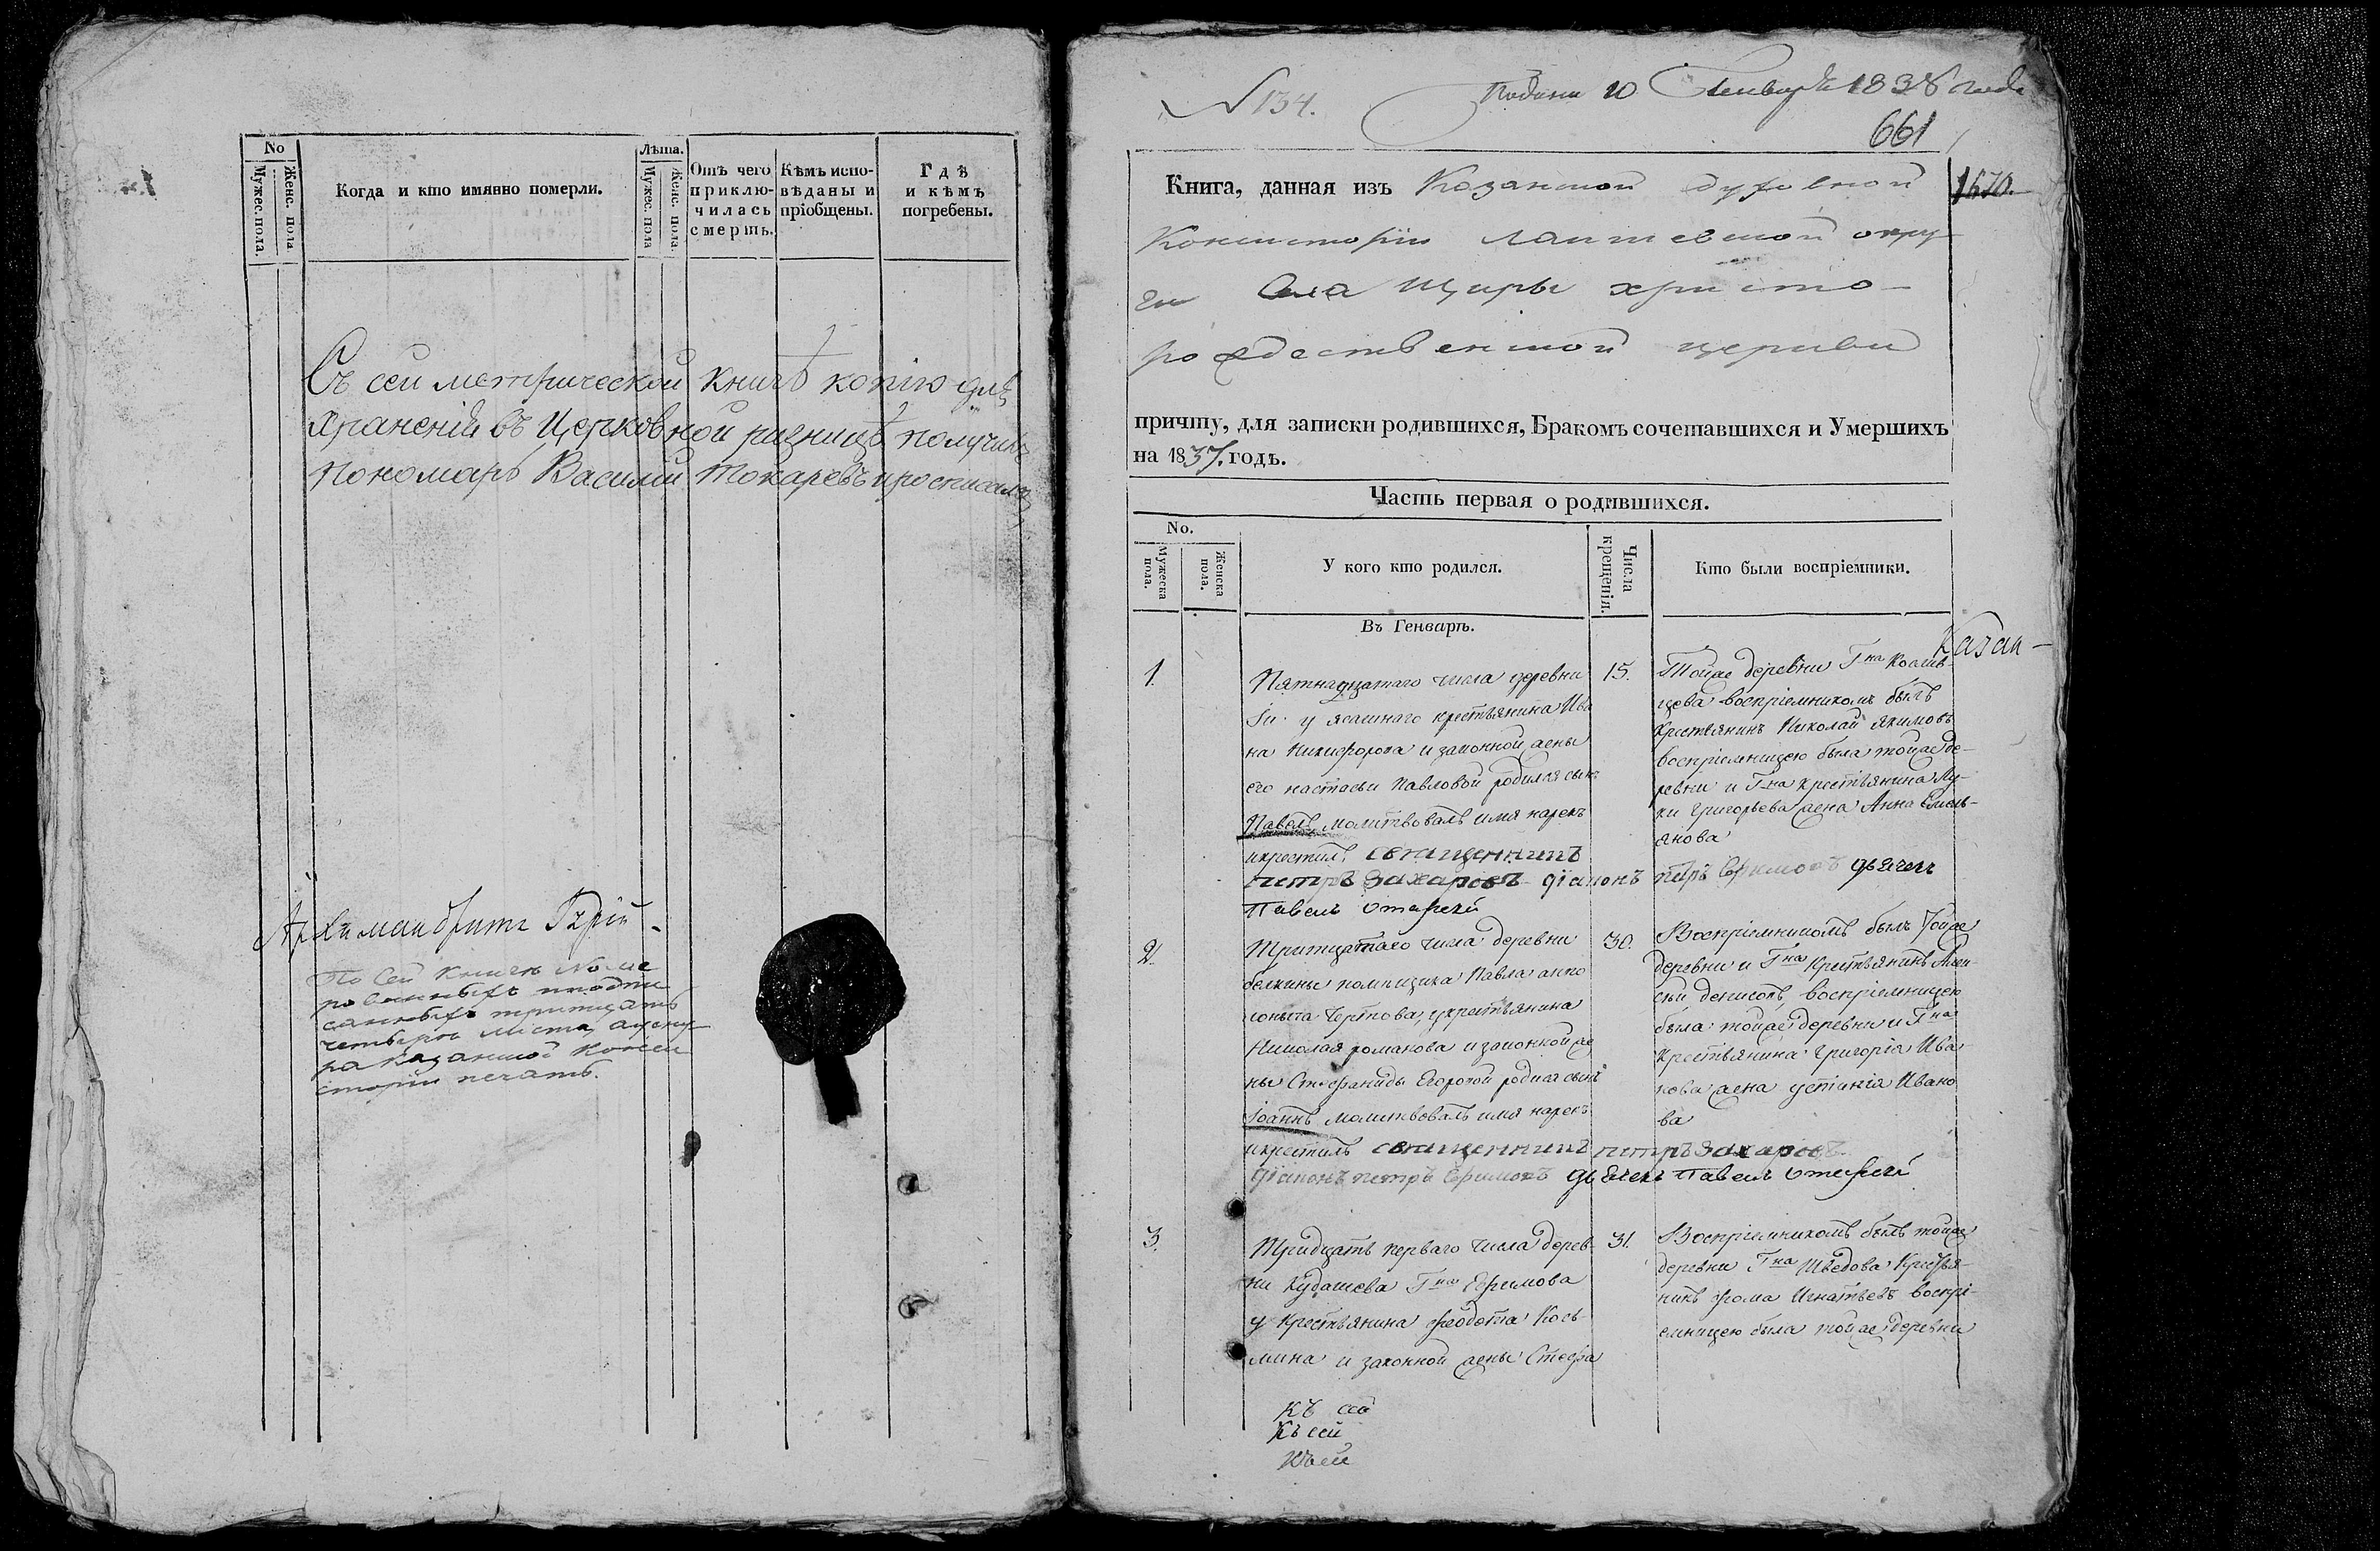 No
Мужес. пола.
Женс. пола
Когда и кто имянно померли.
Лѣта.
Мужес. пола
Женс. пола.
Отъ чего приклю-чилась смерть.
Кѣмъ испо-вѣданы и пріобщены.
Гдѣ и кѣмъ погребены.
Съ сей метрической книгѣ копію для
Храненій въ Церковной ризницѣ получилъ
пономарь Василий Токаревъ и росписалъ
Архимандритъ Гурій.
По сей книге
тритцать
четыре листа,
ра Казанской Конси
сторіи печать.
N 134.
Подана 10 Генваря 1838 года
661
Книга, данная изъ Казанской духовной
1670.
Консисторіи Лаишевской окру
ги Села Щиры христо-
рождественской церкви
причту, для записки родившихся, Бракомъ сочетавшихся и Умершихъ
на 1837. годъ.
Часть первая о родившихся.
No.
Мужеска пола.
Женска пола.
У кого кто родился.
Числа крещенія.
Кто были воспріемники.
Въ Генварѣ.
Казан-
1.
Пятнадцатаго числа деревни
у ясашнаго крестьянина Ива
на Никифорова и законной жены
его настасьи Павловой родился сынъ
Павелъ молитвовалъ имя нарекъ
и крестилъ священникъ
петръ Захаровъ діаконъ петръ Ефимовъ дьячекъ
Павелъ
15.
Тойже деревни Гна
воспріемникомъ былъ
крестьянинъ Николай Якимовъ
воспріемницею была тойже де-
ревни и Гна крестьянина Лу-
ки Григорьева жена Анна Емель-
янова
2.
Тритцатаго числа деревни
помещика Павла апо
крестьянина
Николая романова и законной же
ны Стефаниды Егоровой родился сынъ
Іоаннъ молитвовалъ имя нарекъ
и крестилъ священникъ петръ Захаровъ
діаконъ петръ Ефимовъ дьячекъ Павелъ
30.
Воспріемникомъ былъ тойже
деревни и Гна Крестьянинъ Алек
сѣй денисовъ, воспріемницею
была тойже деревни и Гна
крестьянина Григорія Ива
нова жена устинія Ивано
ва
3.
Тридцать перваго числа дерев-
ни Кудашева Гна Ефимова
у крестьянина феодота Козь-
мина и законной жены Стефа
31.
Воспріемникомъ былъ тойже
деревни Гна Шведова Крестья-
нинъ фома Игнатьевъ воспрі-
емницею была тойже деревни
къ сей
Къ сей